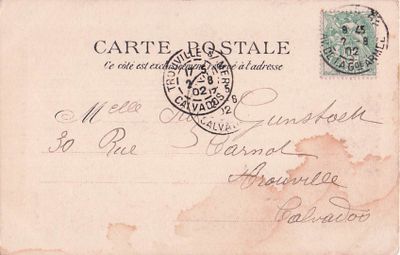 CARTE POSTALE
Ce côté est exclusivement réservé à l'adresse
TROUVILLE S/ MER
17
2 8
02
CALVADOS
8 45
2 8
02
DE LA Gde ARMEE
Melle Gunstoett
30 Rue Carnot
Trouville
Calvados